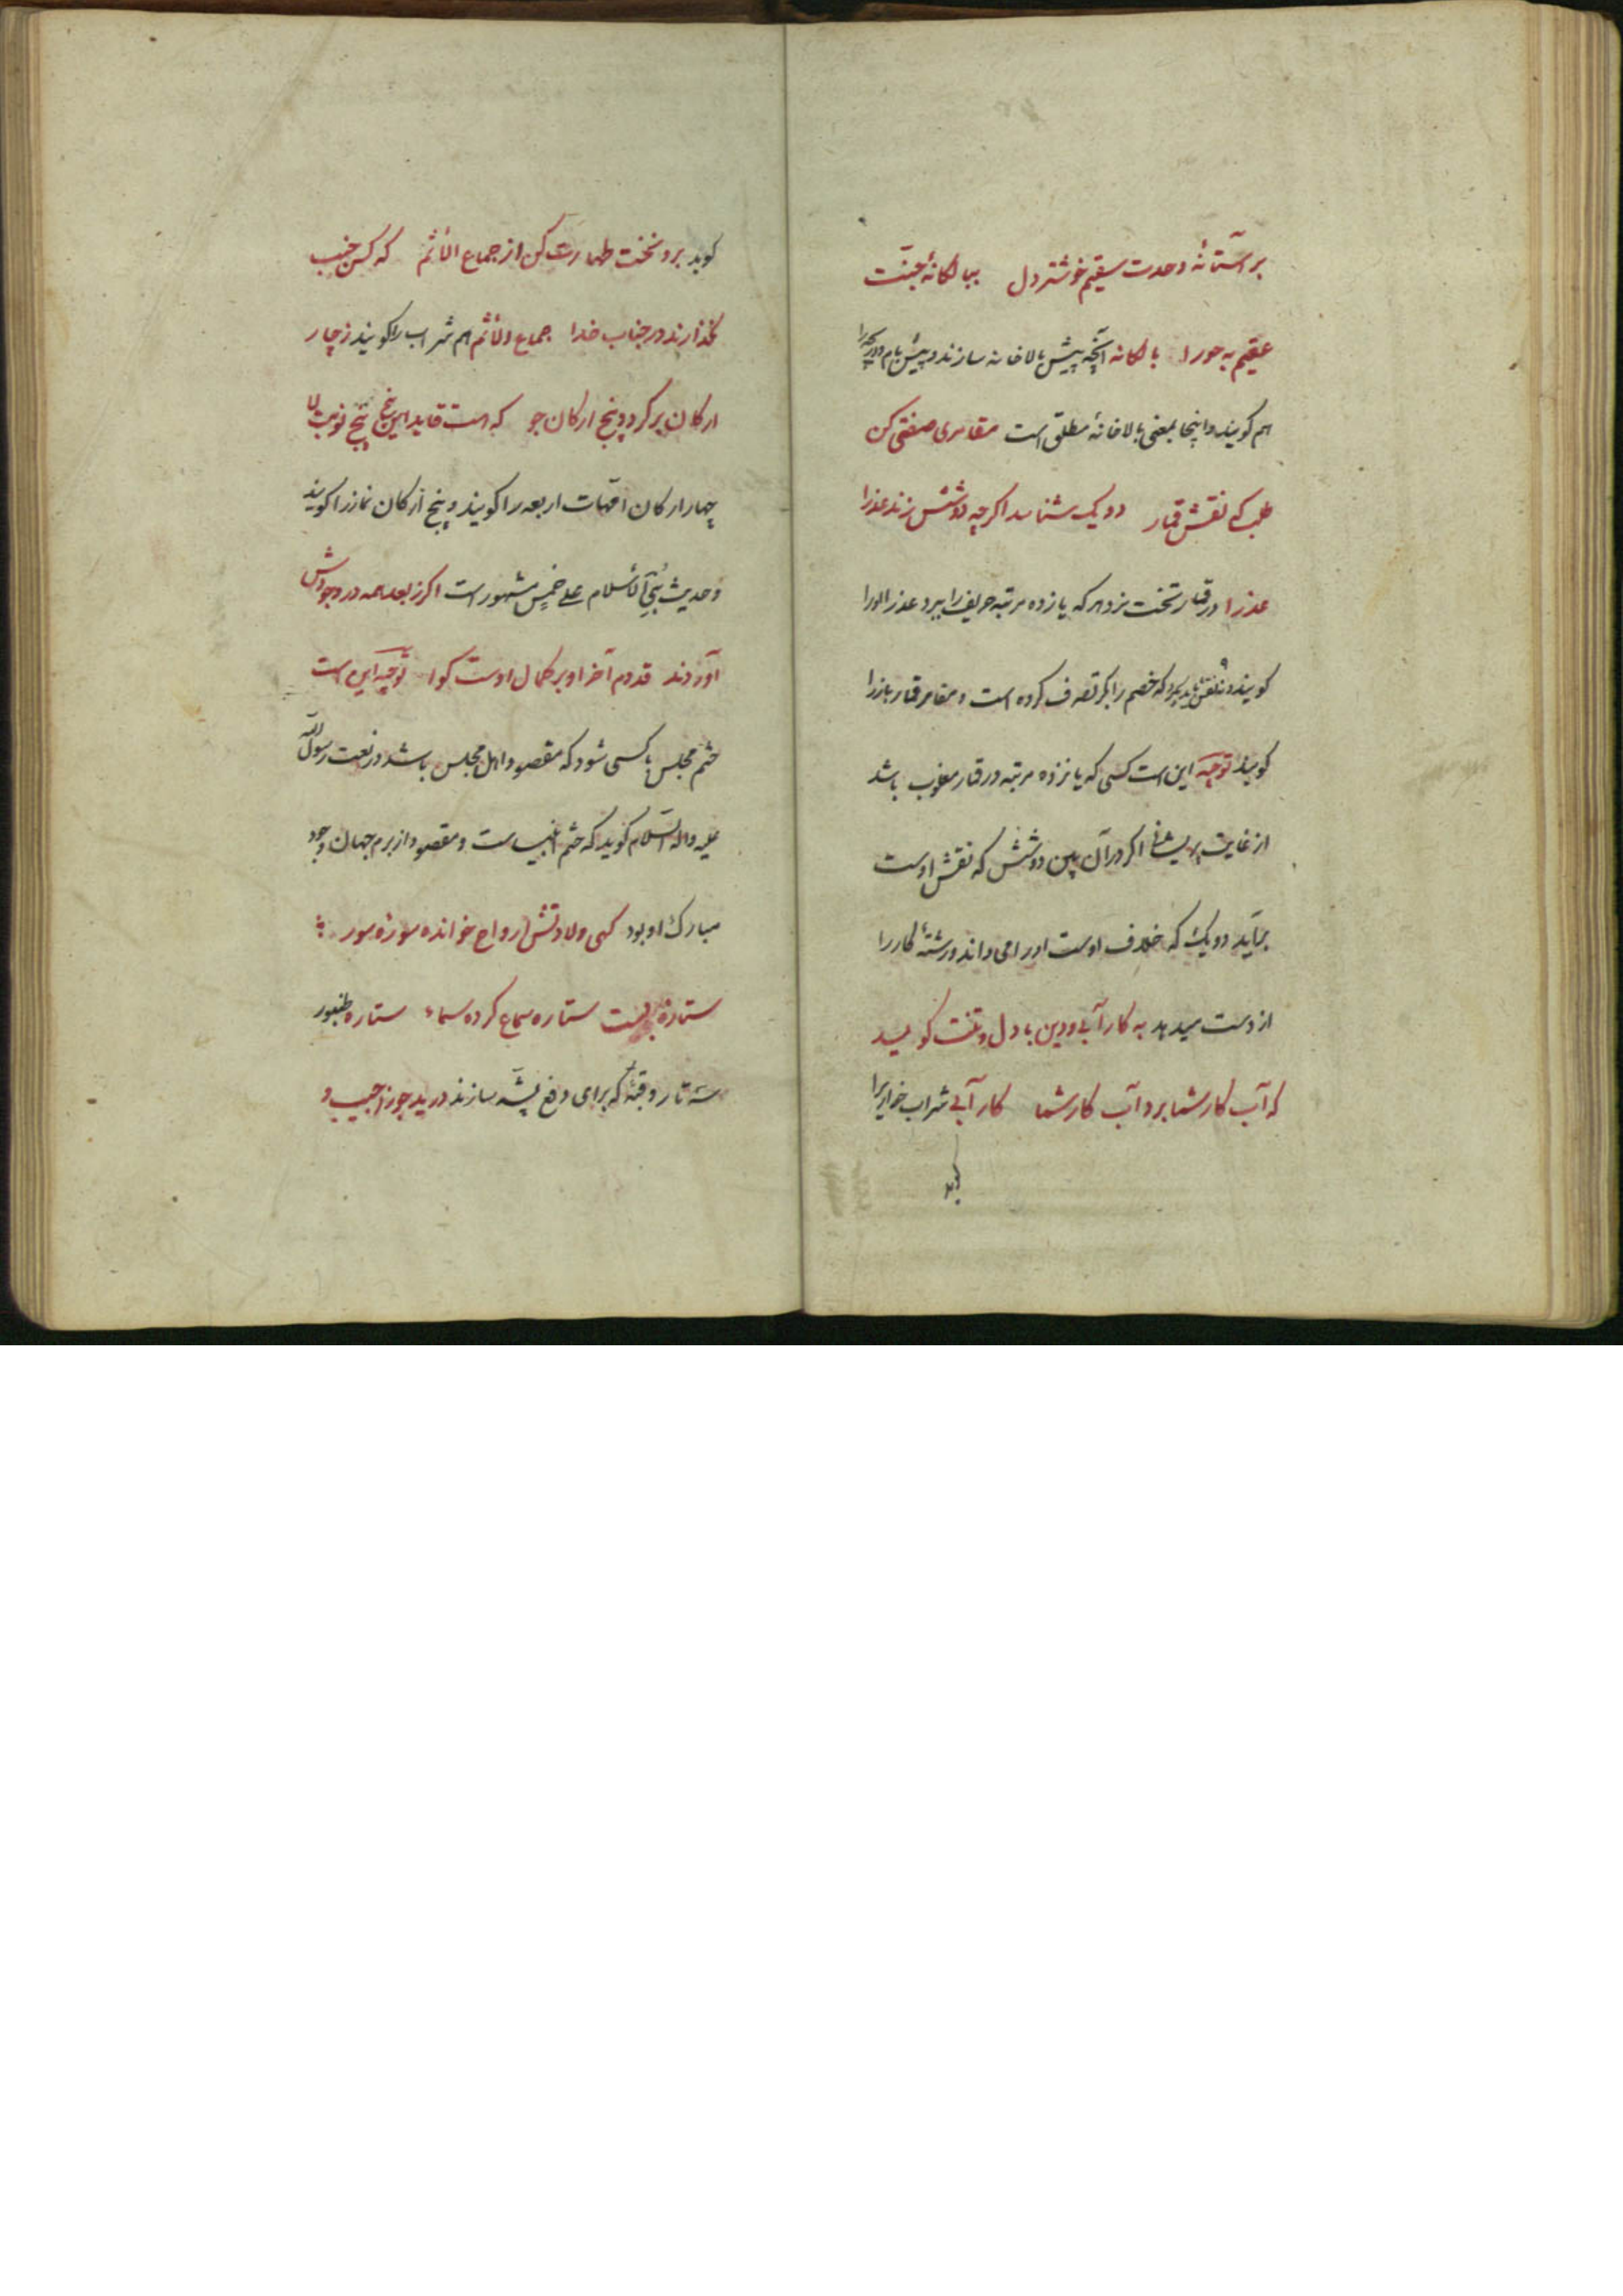 بر آستانهٔ وحدت سقیم خوشتر دل ببالکانهٔ جنت
عقیم به حورا بالکانه آنچه پیش بالاخانه سازند و پیش بام دریچه را
هم گویند و اینجا بمعنی بالاخانهٔ مطلق است مقامری صفتی کن
طلب که نقش قمار دو یک شناسد اگرچه دو شش زند عذرا
عذرا در قمار تخت نرد هر که یازده مرتبه حریف را ببرد عذر اورا
گویند که خصم را بکر تصرف کرده است و مقامر قمار باز را
گویند توجیه این است کسی که پانزده مرتبه در قمار مغلوب باشد
از غایت پریشانی اگر در آن بین دو شش که نقش اوست
برآید دو یک که خلاف اوست اورا می داند و رشتهٔ کار را
از دست میدهد به کار آبی و دین با دل و تنت گوید
که آب کار شما برد آب کار شما کار آبی شراب خواریرا
گوید
گوید برو نخست طهارت کن از جماع الاثم که کس جنب
نگذارند در جناب خدا جماع الاثم هم شراب را گویند ز چار
ارکان برگرد و پنج ارکان جو که هست قاید این پنج پنج نوبت لا
چهار ارکان امّهات اربعه را گویند و پنج ارکان نماز را گویند
و حدیث بُنِیَ الاسلام علی خمسٍ مشهور است اگر ز بعد همه در وجودش
آوردند قدوم آخر او بر کمال اوست گوا توجیه این است
ختم مجلس با کسی شود که مقصود اهل مجلس باشد در نعت رسول الله
علیه و اله السّلام گوید که ختم انبیاست و مقصود از بزم جهان وجود
مبارک او بود گهی ولادتش ارواح خوانده سورهٔ سور
ستاره بست ستاره سماع کرده سماء ستاره طنبور
سه تار و قبهٔ که برای دفع پشّه سازند درید جوزا جیب و